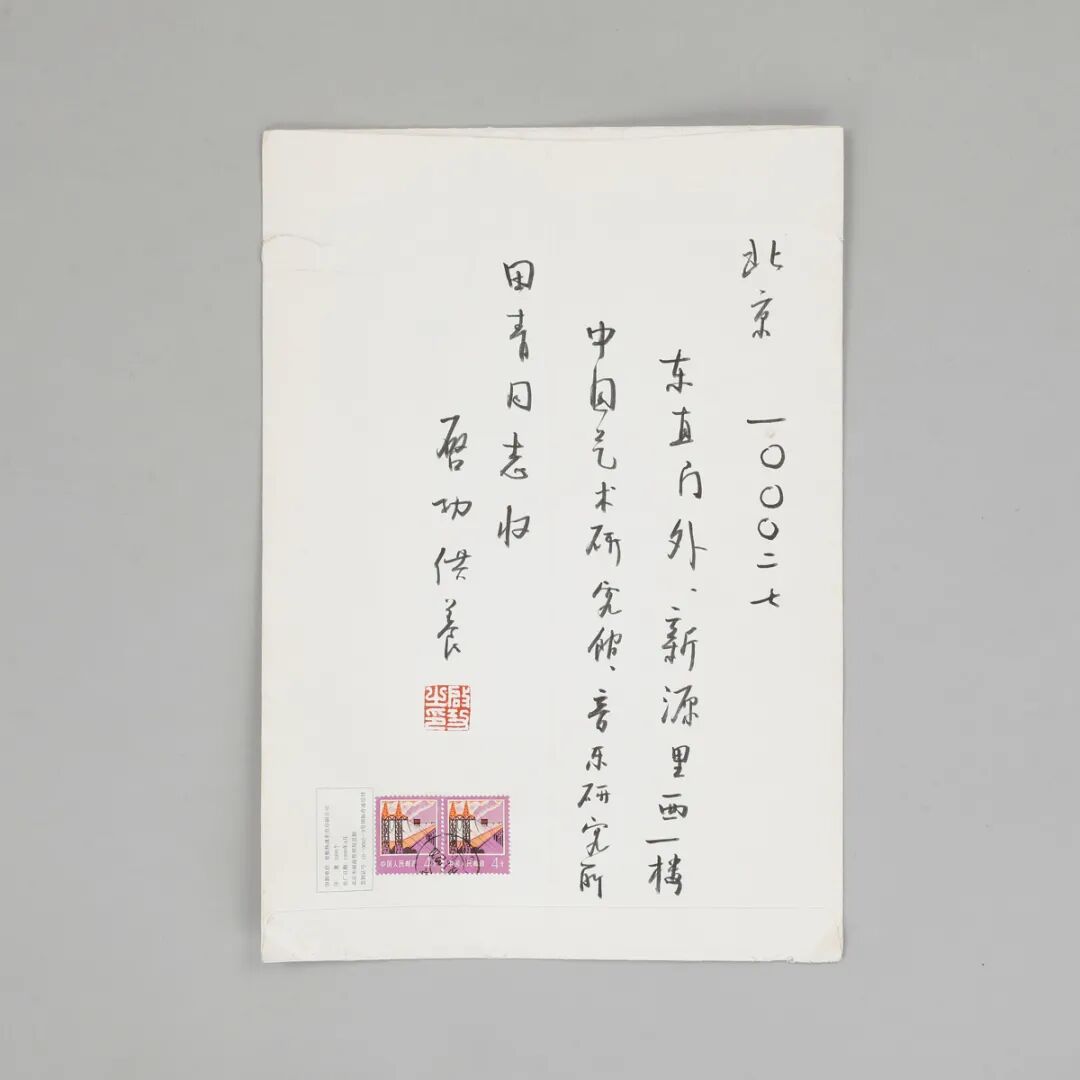 北京 一〇〇〇二七
东直门外、新源里西一楼
中国艺术研究馆、音乐研究所
田青同志收
启功供养
启功之印
中国人民邮政 4分
中国人民邮政 4分